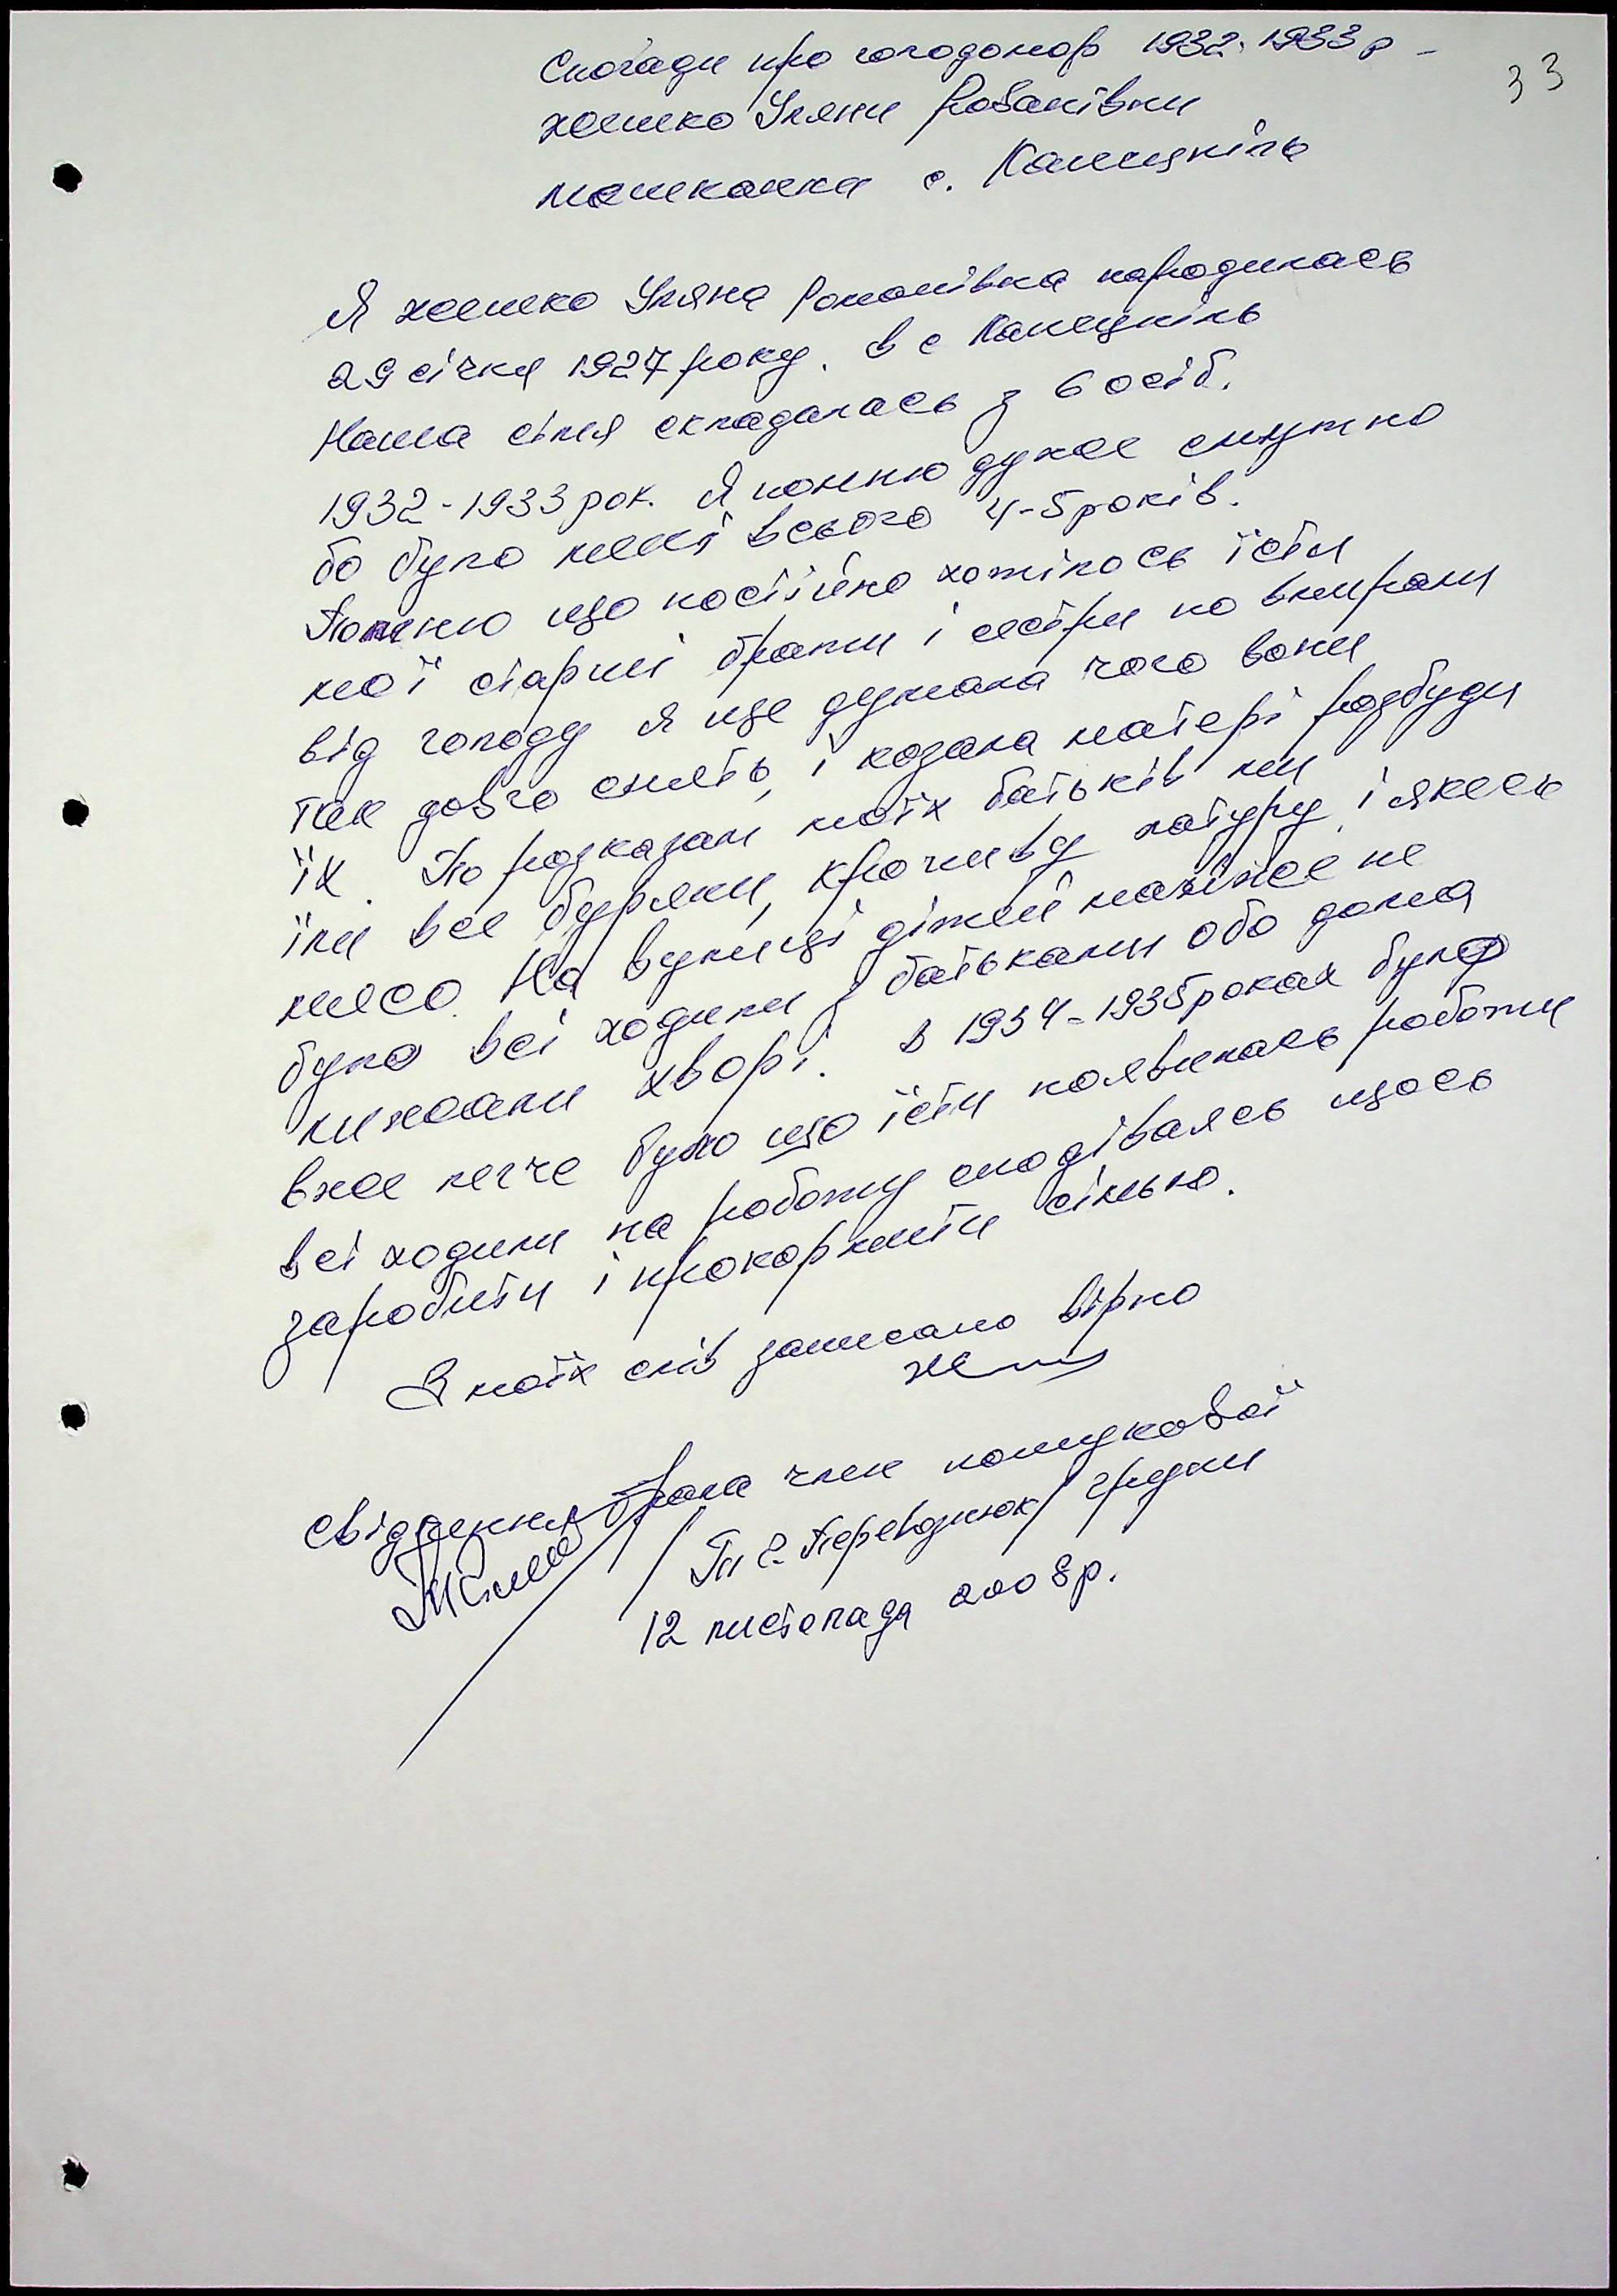 Спогади про голодомор 1932-1933 р -
33
Жешко Уляни Романівни
мешканка с. Канецпіль
Я Жешко Уляна Романівна народилась
29 січня 1927 року. в с Канецпіль
Наша сімя складалась з 6 осіб.
1932-1933 рок. Я помню дуже смутно
бо було мені всього 4-5 років.
Помню що постійно хотілось їсти
мої старші брати і сестри по вмирали
від голоду я ще думала чого вони
так довго сплять, і казала матері розбуди
їх. По розказам моїх батьків ми
їли все буряки, кропиву, матуру, і якесь
мясо. На вулиці дітей майже не
було всі ходили з батьками або дома
лижали хворі. в 1934-1935 роках було
вже легче було що їсти появилась роботи
всі ходили на роботу сподіваясь щось
заробити і прокормити сімью.
З моїх слів записано вірно
свідчення брала член пошукової
/ Перевознюк / групи
12 листопада 2008 р.